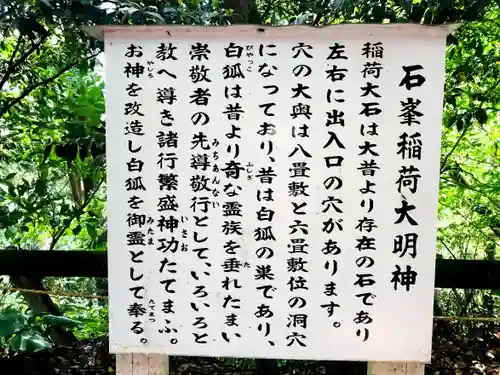 石峯稲荷大明神
稲荷大石は大昔より存在の石であり
左右に出入口の穴があります。
穴の大奥は八畳敷と六畳敷位の洞穴
になっており、昔は白狐の巣であり、
白狐は昔より奇な霊族を垂れたまい
びやっこ
ふしぎ
た
崇敬者の先導敬行として、いろいろと
みちあんない
教へ導き諸行繁盛神功たてまふ。
いさお
お神を改造し白狐を御霊として奉る。
やしろ
みたま
たてまつ